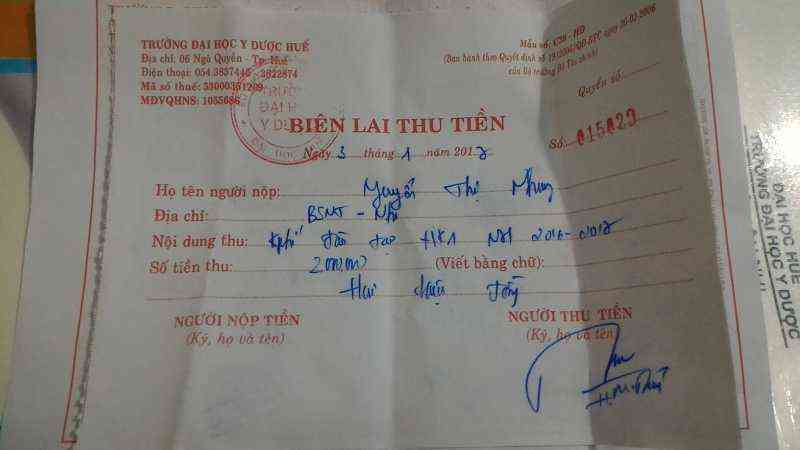 TRƯỜNG ĐẠI HỌC Y DƯỢC HUẾ
Địa chỉ: 06 Ngô Quyền - Tp. Huế
Điện thoại: 054.3837446 - 3822874
Mã số thuế: 33000361209
MĐVQHNS: 1055686
Mẫu số: C38 - HD
(Ban hành theo Quyết định số 19/2006/QĐ-BTC ngày 30-03-2006
của Bộ trưởng Bộ Tài chính)
Quyển số:
TRƯỜNG
ĐẠI H
Y DƯỢ
BIÊN LAI THU TIỀN
Số: 015029
Ngày 3 tháng 1 năm 2017
Họ tên người nộp: Nguyễn Thị Nhung
Địa chỉ: BSNT - Nhi
Nội dung thu: Kphí đào tạo HK1 NH 2016-2017
Số tiền thu: 2000000 (Viết bằng chữ):
Hai triệu đồng
NGƯỜI NỘP TIỀN
(Ký, họ và tên)
NGƯỜI THU TIỀN
(Ký, họ và tên)
ĐẠI HỌC HUẾ
TRƯỜNG ĐẠI HỌC Y DƯỢC